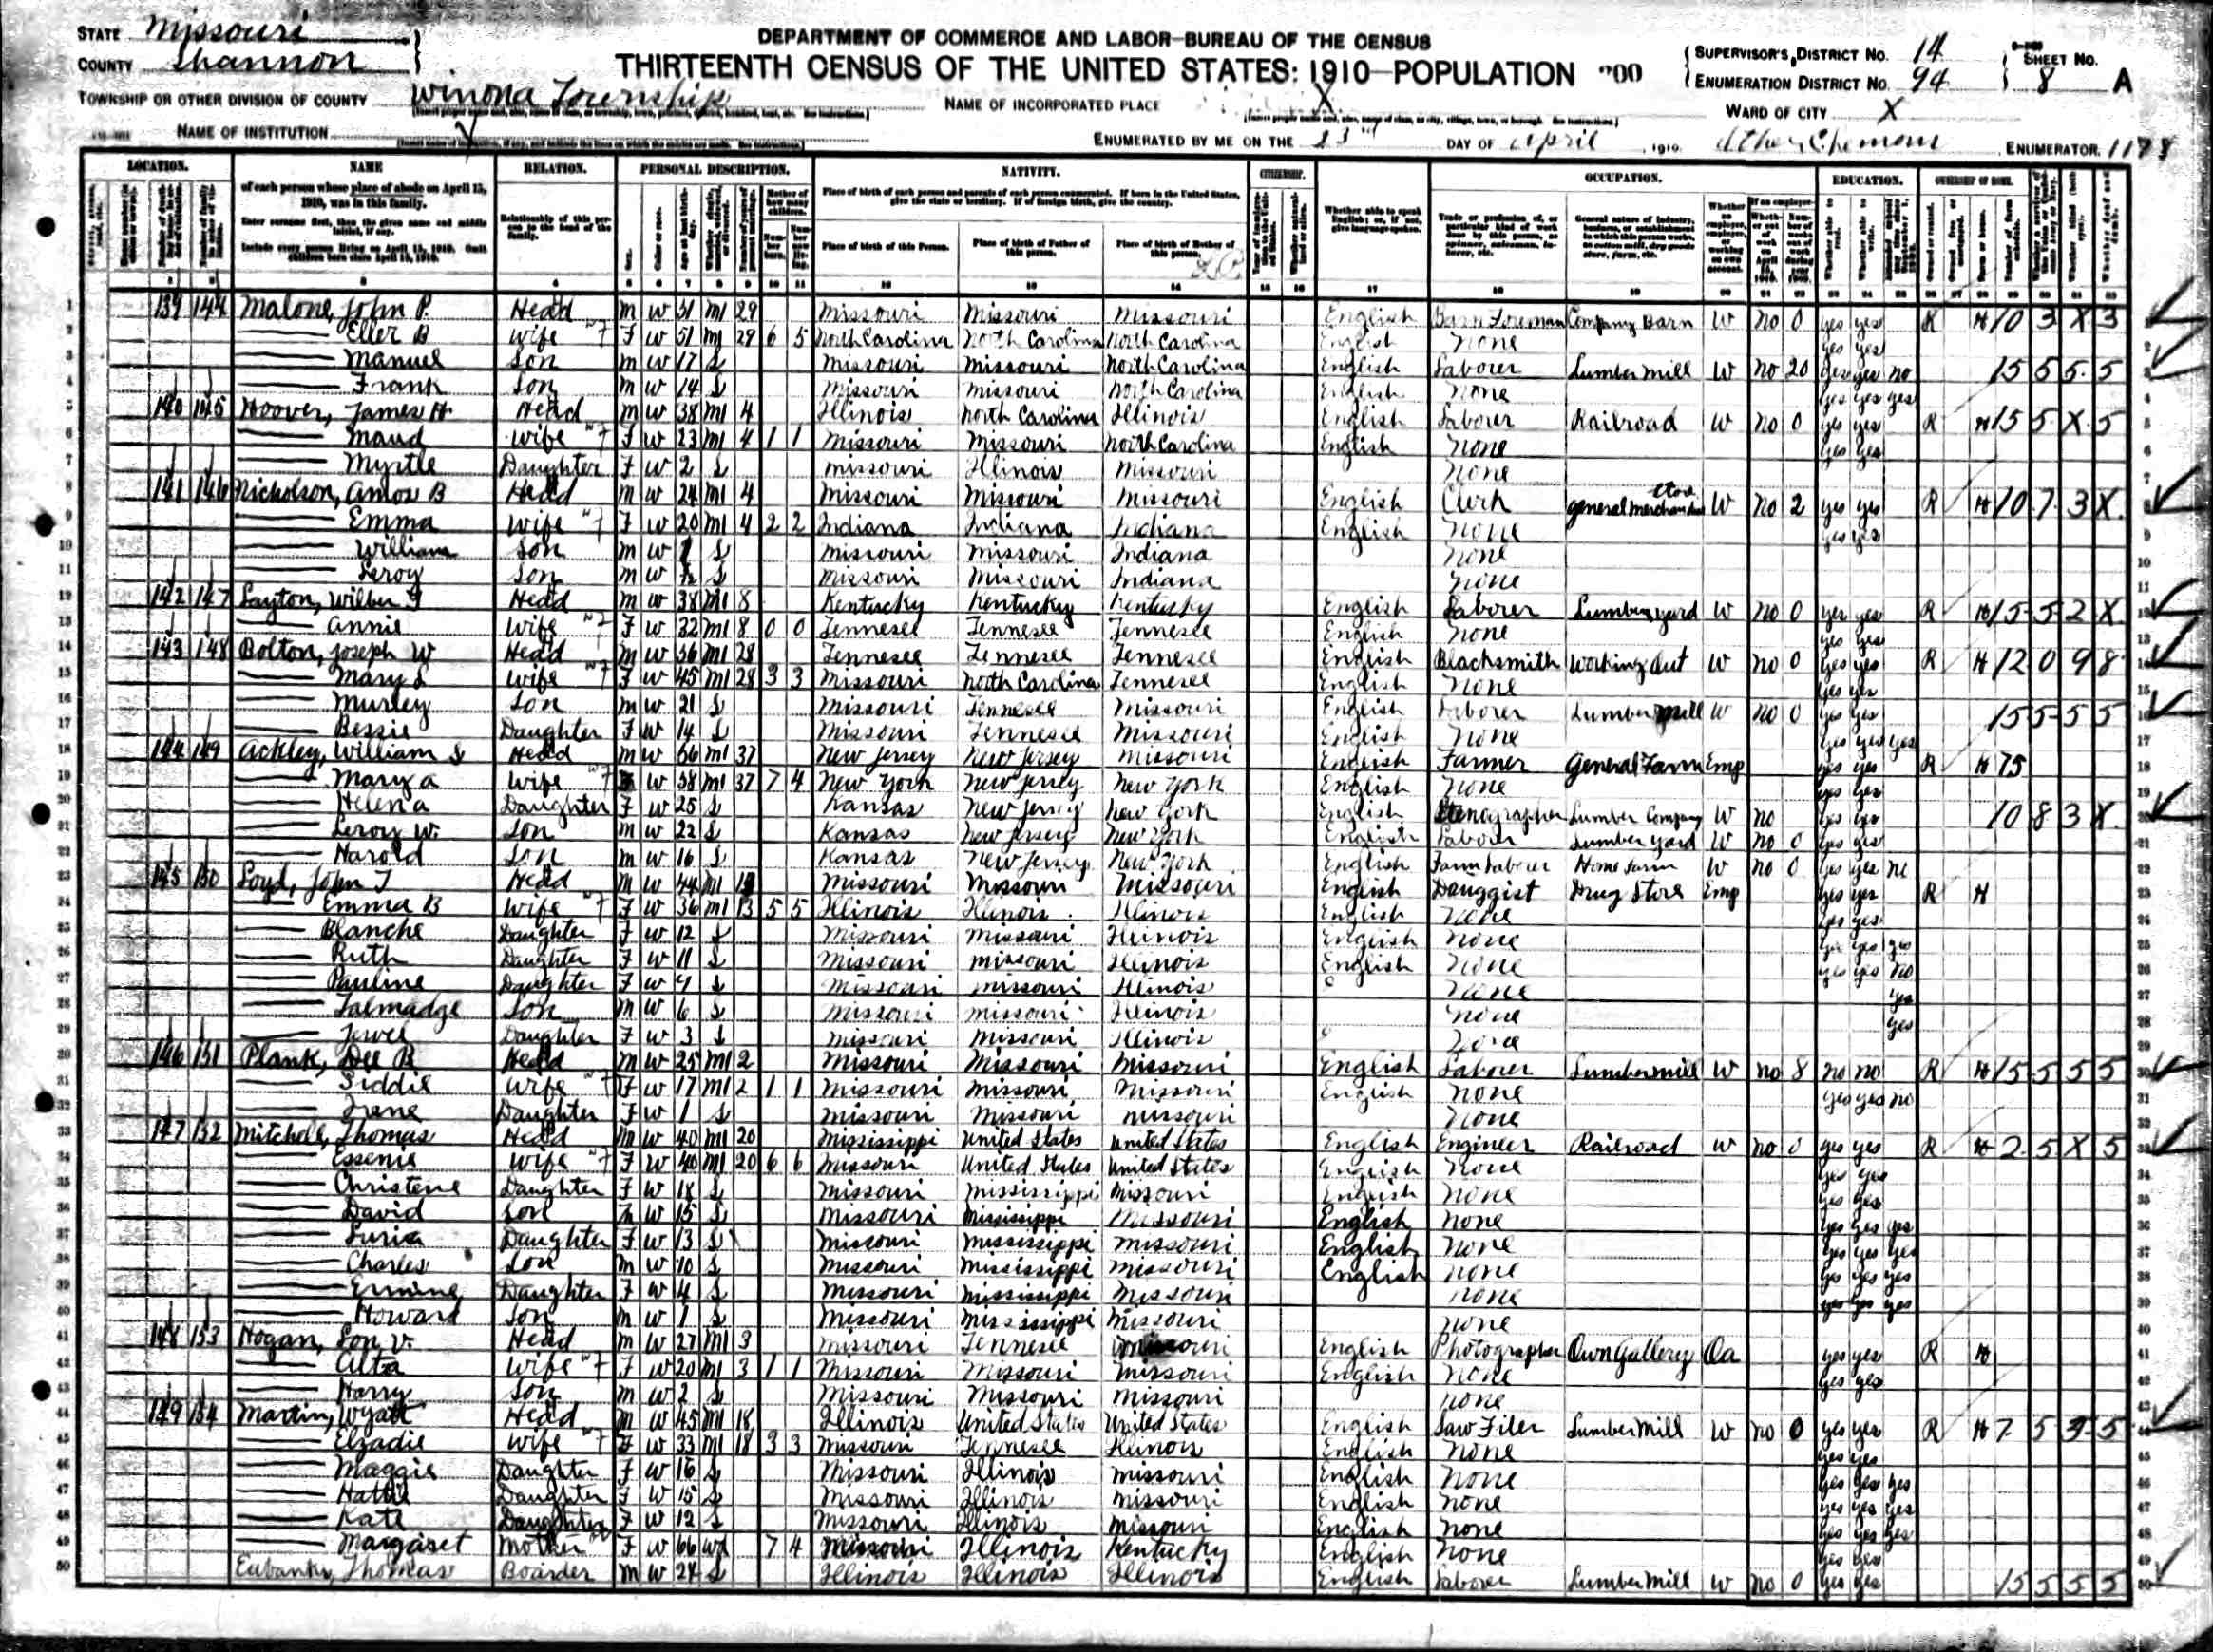 STATE Missouri
COUNTY Shannon
DEPARTMENT OF COMMERCE AND LABOR—BUREAU OF THE CENSUS
THIRTEENTH CENSUS OF THE UNITED STATES: 1910—POPULATION
SUPERVISOR'S DISTRICT NO. 14
ENUMERATION DISTRICT NO. 94
SHEET NO. 8 A
TOWNSHIP OR OTHER DIVISION OF COUNTY Winona Township
NAME OF INCORPORATED PLACE X
WARD OF CITY X
NAME OF INSTITUTION X
ENUMERATED BY ME ON THE 23rd DAY OF April, 1910. ENUMERATOR. 1178
LOCATION. NAME RELATION. PERSONAL DESCRIPTION. NATIVITY. CITIZENSHIP. OCCUPATION. EDUCATION. OWNERSHIP OF HOME.
of each person whose place of abode on April 15, 1910, was in this family.
Enter surname first, then the given name and middle initial, if any.
Include every person living on April 15, 1910. Omit children born since April 15, 1910.
Relationship of this person to the head of the family.
Place of birth of each person and parents of each person enumerated. If born in the United States, give the state or territory. If of foreign birth, give the country.
Place of birth of this Person. Place of birth of Father of this person. Place of birth of Mother of this person.
1 139 144 Malone, John P. Head M W 51 M1 29 Missouri Missouri Missouri English Barn Foreman Company Barn W no 0 yes yes R H 10 3 X 3
2 Eller B Wife F W 51 M1 29 6 5 North Carolina North Carolina North Carolina English None yes yes
3 Manuel Son M W 17 S Missouri Missouri North Carolina English Laborer Lumber Mill W no 20 yes yes no 15 5 5 5
4 Frank Son M W 14 S Missouri Missouri North Carolina English None yes yes yes
5 140 145 Hoover, James H. Head M W 38 M1 4 Illinois North Carolina Illinois English Laborer Railroad W no 0 yes yes R H 15 5 X 5
6 Maud Wife F W 23 M1 4 1 1 Missouri Missouri North Carolina English None yes yes
7 Myrtle Daughter F W 2 S Missouri Illinois Missouri None
8 141 146 Nicholson, Amos B Head M W 24 M1 4 Missouri Missouri Missouri English Clerk general merchandise store W no 2 yes yes R H 10 7 3 X
9 Emma Wife F W 20 M1 4 2 2 Indiana Indiana Indiana English None yes yes
10 William Son M W S Missouri Missouri Indiana None
11 Leroy Son M W S Missouri Missouri Indiana None
12 142 147 Layton, Wilber Head M W 38 M1 8 Kentucky Kentucky Kentucky English Laborer Lumber yard W no 0 yes yes R H 15 5 2 X
13 Annie Wife F W 32 M1 8 0 0 Tennesee Tennesee Tennesee English None yes yes
14 143 148 Bolton, Joseph W Head M W 56 M1 28 Tennesee Tennesee Tennesee English Blacksmith Working Out W no 0 yes yes R H 12 0 9 8
15 Mary L Wife F W 45 M1 28 3 3 Missouri North Carolina Tennesee English None yes yes
16 Murley Son M W 21 S Missouri Tennesee Missouri English Laborer Lumber Mill W no 0 yes yes 15 5 5 5
17 Bessie Daughter F W 14 S Missouri Tennesee Missouri English None yes yes yes
18 144 149 Ackley, William S Head M W 56 M1 37 New Jersey New Jersey Missouri English Farmer General Farm Emp yes yes R H 75
19 Mary A Wife F W 58 M1 37 7 4 New York New Jersey New York English None yes yes
20 Helena Daughter F W 25 S Kansas New Jersey New York English Stenographer Lumber Company W no yes yes 10 8 3 X
21 Leroy W. Son M W 22 S Kansas New Jersey New York English Laborer Lumber yard W no 0 yes yes
22 Harold Son M W 16 S Kansas New Jersey New York English Farm Laborer Home Farm W no 0 yes yes no
23 145 150 Loyd, John T Head M W 44 M1 Missouri Missouri Missouri English Druggist Drug Store Emp yes yes R H
24 Emma B Wife F W 36 M1 13 5 5 Illinois Illinois Illinois English None yes yes
25 Blanche Daughter F W 12 S Missouri Missouri Illinois English None yes yes yes
26 Ruth Daughter F W 11 S Missouri Missouri Illinois English None yes yes no
27 Pauline Daughter F W S Missouri Missouri Illinois None yes
28 Talmadge Son M W 6 S Missouri Missouri Illinois None yes
29 Jewel Daughter F W 3 S Missouri Missouri Illinois None
30 146 151 Plank, Dee R Head M W 25 M1 2 Missouri Missouri Missouri English Laborer Lumber mill W no 8 no no R H 15 5 5 5
31 Siddie Wife F W 17 M1 2 1 1 Missouri Missouri Missouri English None yes yes no
32 Irene Daughter F W 1 S Missouri Missouri Missouri None
33 147 152 Mitchell, Thomas Head M W 40 M1 20 Mississippi United States United States English Engineer Railroad W no 0 yes yes R H 2 5 X 5
34 Essenie Wife F W 40 M1 20 6 6 Missouri United States United States English None yes yes
35 Christene Daughter F W 18 S Missouri Mississippi Missouri English None yes yes
36 David Son M W 15 S Missouri Mississippi Missouri English None yes yes yes
37 Daughter F W 13 S Missouri Mississippi Missouri English None yes yes yes
38 Charles Son M W 10 S Missouri Mississippi Missouri English None yes yes yes
39 Ermine Daughter F W 4 S Missouri Mississippi Missouri None yes yes yes
40 Howard Son M W 1 S Missouri Mississippi Missouri None
41 148 153 Hogan, Lon V. Head M W 27 M1 3 Missouri Tennesee Missouri English Photographer Own Gallery Oa yes yes R H
42 Alta Wife F W 20 M1 3 1 1 Missouri Missouri Missouri English None yes yes
43 Harry Son M W 2 S Missouri Missouri Missouri None
44 149 154 Martin, Wyatt Head M W 45 M1 18 Illinois United States United States English Saw Filer Lumber Mill W no 0 yes yes R H 7 5 5
45 Elzadie Wife F W 33 M1 18 3 3 Missouri Tennesee Illinois English None yes yes
46 Maggie Daughter F W 16 S Missouri Illinois Missouri English None yes yes yes
47 Hattie Daughter F W 15 S Missouri Illinois Missouri English None yes yes yes
48 Kate Daughter F W 12 S Missouri Illinois Missouri English None yes yes yes
49 Margaret Mother F W 66 Wd 7 4 Missouri Illinois Kentucky English None yes yes
50 Eubanks, Thomas Boarder M W 24 S Illinois Illinois Illinois English Laborer Lumber Mill W no 0 yes yes 15 5 5 5